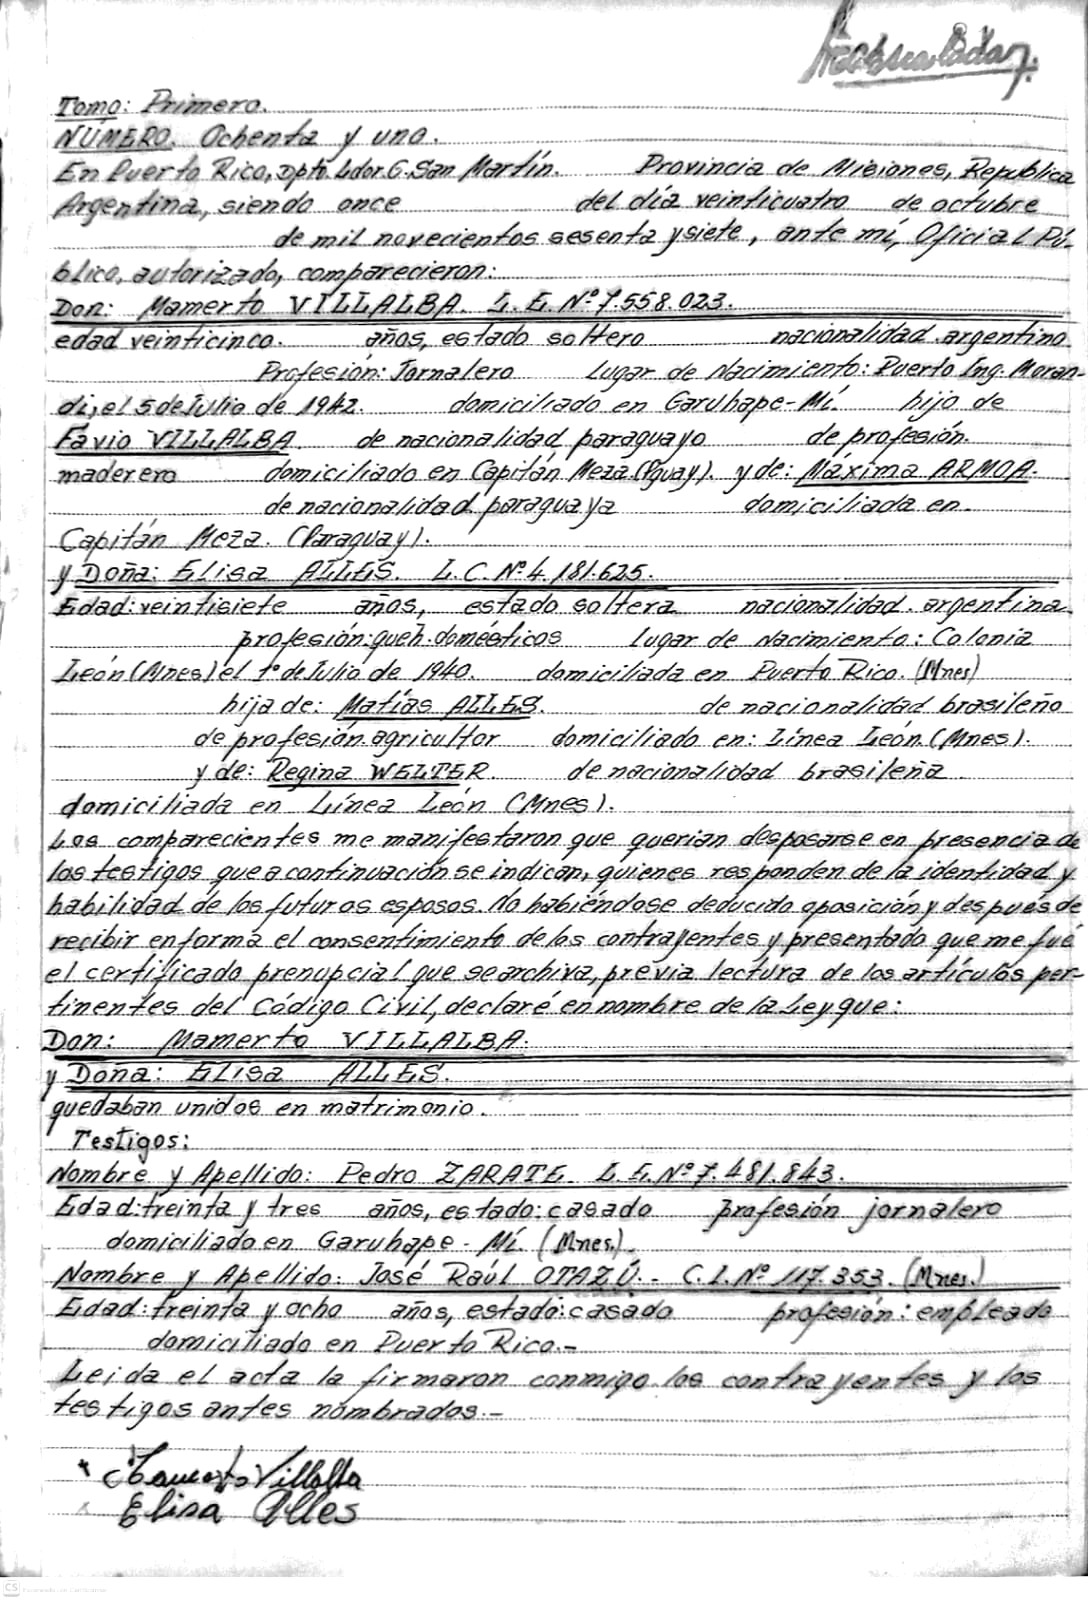 Tomo: Primero.
NÚMERO. Ochenta y uno.
En Puerto Rico, Dpto. Ldor. G. San Martín. Provincia de Misiones, Republica
Argentina, siendo once del día veinticuatro de octubre
de mil novecientos sesenta y siete, ante mí, Oficial Pú-
blico, autorizado, comparecieron:
Don: Mamerto VILLALBA. L.E. Nº 7.558.023.
edad veinticinco. años, estado soltero nacionalidad argentino
Profesión: Jornalero Lugar de Nacimiento: Puerto Ing. Moran-
di, el 5 de Julio de 1942. domiciliado en Garuhape-Mí. hijo de
Favio VILLALBA. de nacionalidad paraguayo de profesión.
maderero domiciliado en Capitán Meza (Pguay). y de: Máxima ARMOA.
de nacionalidad paraguaya domiciliada en.
Capitán Meza. (Paraguay).
y Doña: Elisa ALLES. L.C. Nº 4.181.625.
Edad: veintisiete años, estado soltera nacionalidad argentina
profesión: queh. domésticos Lugar de Nacimiento: Colonia
León (Mnes) el 1º de Julio de 1940. domiciliada en Puerto Rico. (Mnes)
hija de: Matías ALLES. de nacionalidad brasileño
de profesión agricultor domiciliado en: Línea León. (Mnes).
y de: Regina WELTER. de nacionalidad brasileña
domiciliada en Línea León (Mnes).
Los comparecientes me manifestaron que querian desposarse en presencia de
los testigos que a continuación se indican, quienes responden de la identidad y
habilidad de los futuros esposos. No habiéndose deducido oposición y después de
recibir en forma el consentimiento de los contrayentes y presentado que me fué
el certificado prenupcial que se archiva, previa lectura de los artículos per-
tinentes del Código Civil, declaré en nombre de la Ley que:
Don: Mamerto VILLALBA.
y Doña: Elisa ALLES.
quedaban unidos en matrimonio.
Testigos:
Nombre y Apellido: Pedro ZARATE. L.E. Nº 7.481.843.
Edad: treinta y tres años, estado: casado profesión jornalero
domiciliado en Garuhape-Mí. (Mnes.).
Nombre y Apellido: José Raúl OTAZÚ.- C.I. Nº 117.353. (Mnes.)
Edad: treinta y ocho años, estado: casado profesión: empleado
domiciliado en Puerto Rico.-
Leida el acta la firmaron conmigo los contrayentes y los
testigos antes nombrados.-
Mamerto Villalba
Elisa Alles
CS